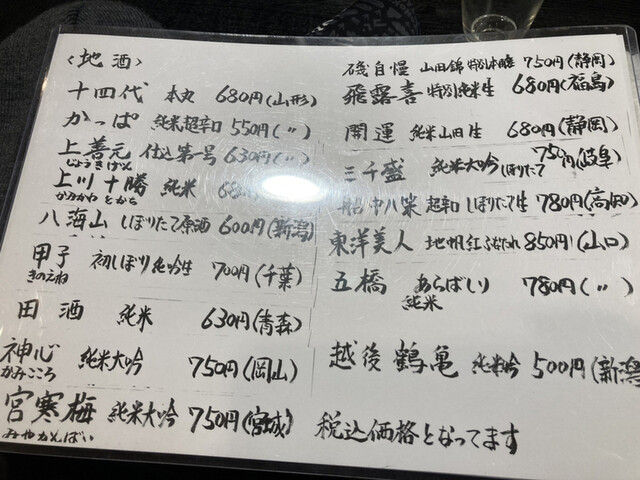 〈地酒〉
十四代 本丸 680円(山形)
かっぱ 純米超辛口 550円(〃)
上善元 仕込第一号 630円(〃)
じょうきげん
上川十勝 純米
かみかわ とかち
八海山 しぼりたて原酒 600円(新潟)
甲子 初しぼり純吟生 700円(千葉)
きのえね
田酒 純米 630円(青森)
神心 純米大吟 750円(岡山)
かみこころ
宮寒梅 純米大吟 750円(宮城)
みやかんばい
磯自慢 山田錦 特別本醸 750円(静岡)
飛露喜 特別純米生 680円(福島)
開運 純米山田生 680円(静岡)
三千盛 純米大吟しぼりたて 750円(岐阜)
船中八策 超辛口 しぼりたて生 780円(高知)
東洋美人 地帆紅 850円(山口)
五橋 あらばしり 780円(〃)
純米
越後鶴亀 純米吟 500円(新潟
税込価格となってます